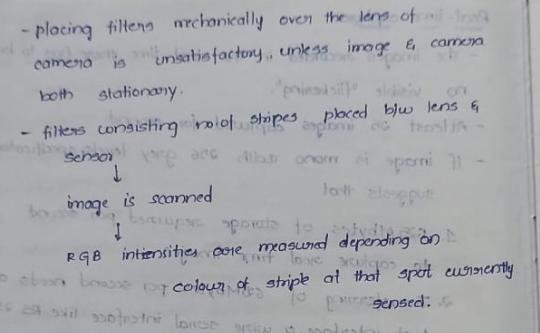 - placing filters mechanically over the lens of
camera is unsatisfactory, unless image & camera
both stationary.
- filters consisting no.of stripes placed b/w lens &
sensor
↓
image is scanned
↓
RGB intiensities are measured depending on
colour of striple at that spot currently
sensed.